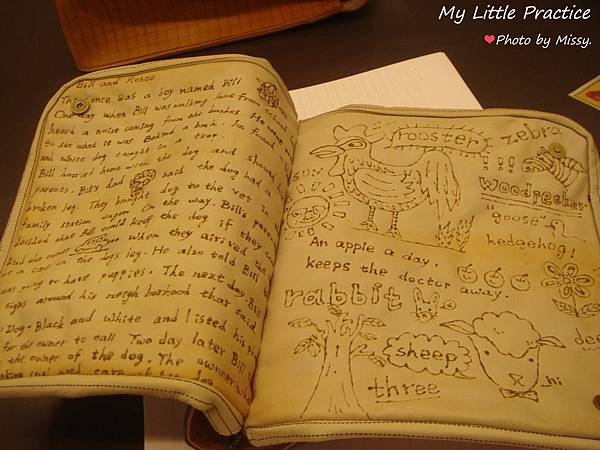 My Little Practice
❤Photo by Missy.
Bill and Rosco
There once was a boy named Bill
One day when Bill was walking home from school
heard a noise coming from the bushes He went
to see what it was Behind a bush. he found
and white dog caught in a trap.
Bill hurried home with the dog and showed
parents. Bill's dad said the dog had a
broken leg. They brought dog to the vet in
family station wagon On the way. Bill's parents
decided that Bill could keep the dog if they
when they airived the
on the dog's leg. He also told Bill
was going to have puppies. The next day. Bill
signs around his neigh borhood that said
Dog. Black and white and listed his
for the owner to call Two day later Bill
the owner of the dog. The owner
rooster
zebra
!!!
SUN
Woodpecker
"goose"
hedgehog!
An apple a day.
keeps the doctor away.
rabbit
sheep
hi
three